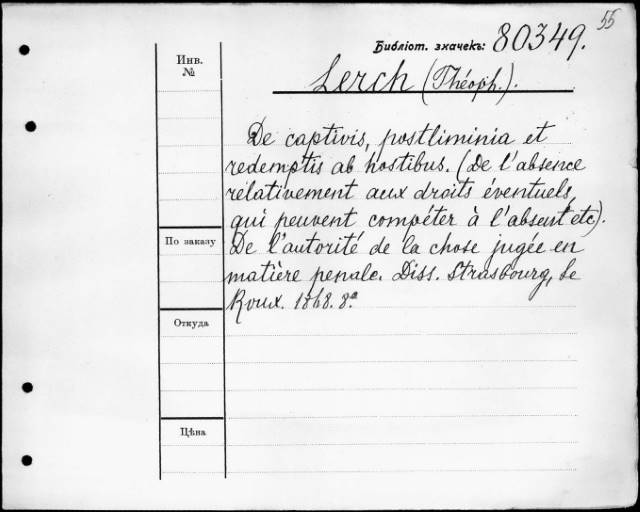 55
Библіот. значекъ: 80349.
Инв.
№
Lerch (Théoph.).
De captivis, postliminia et
redemptis ab hostibus. (De l'absence
rélativement aux droits éventuels,
qui peuvent compéter à l'absent etc).
По заказу
De l'autorité de la chose jugée en
matière penale. Diss. Strasbourg, Le
Roux. 1868. 8º
Откуда
Цѣна